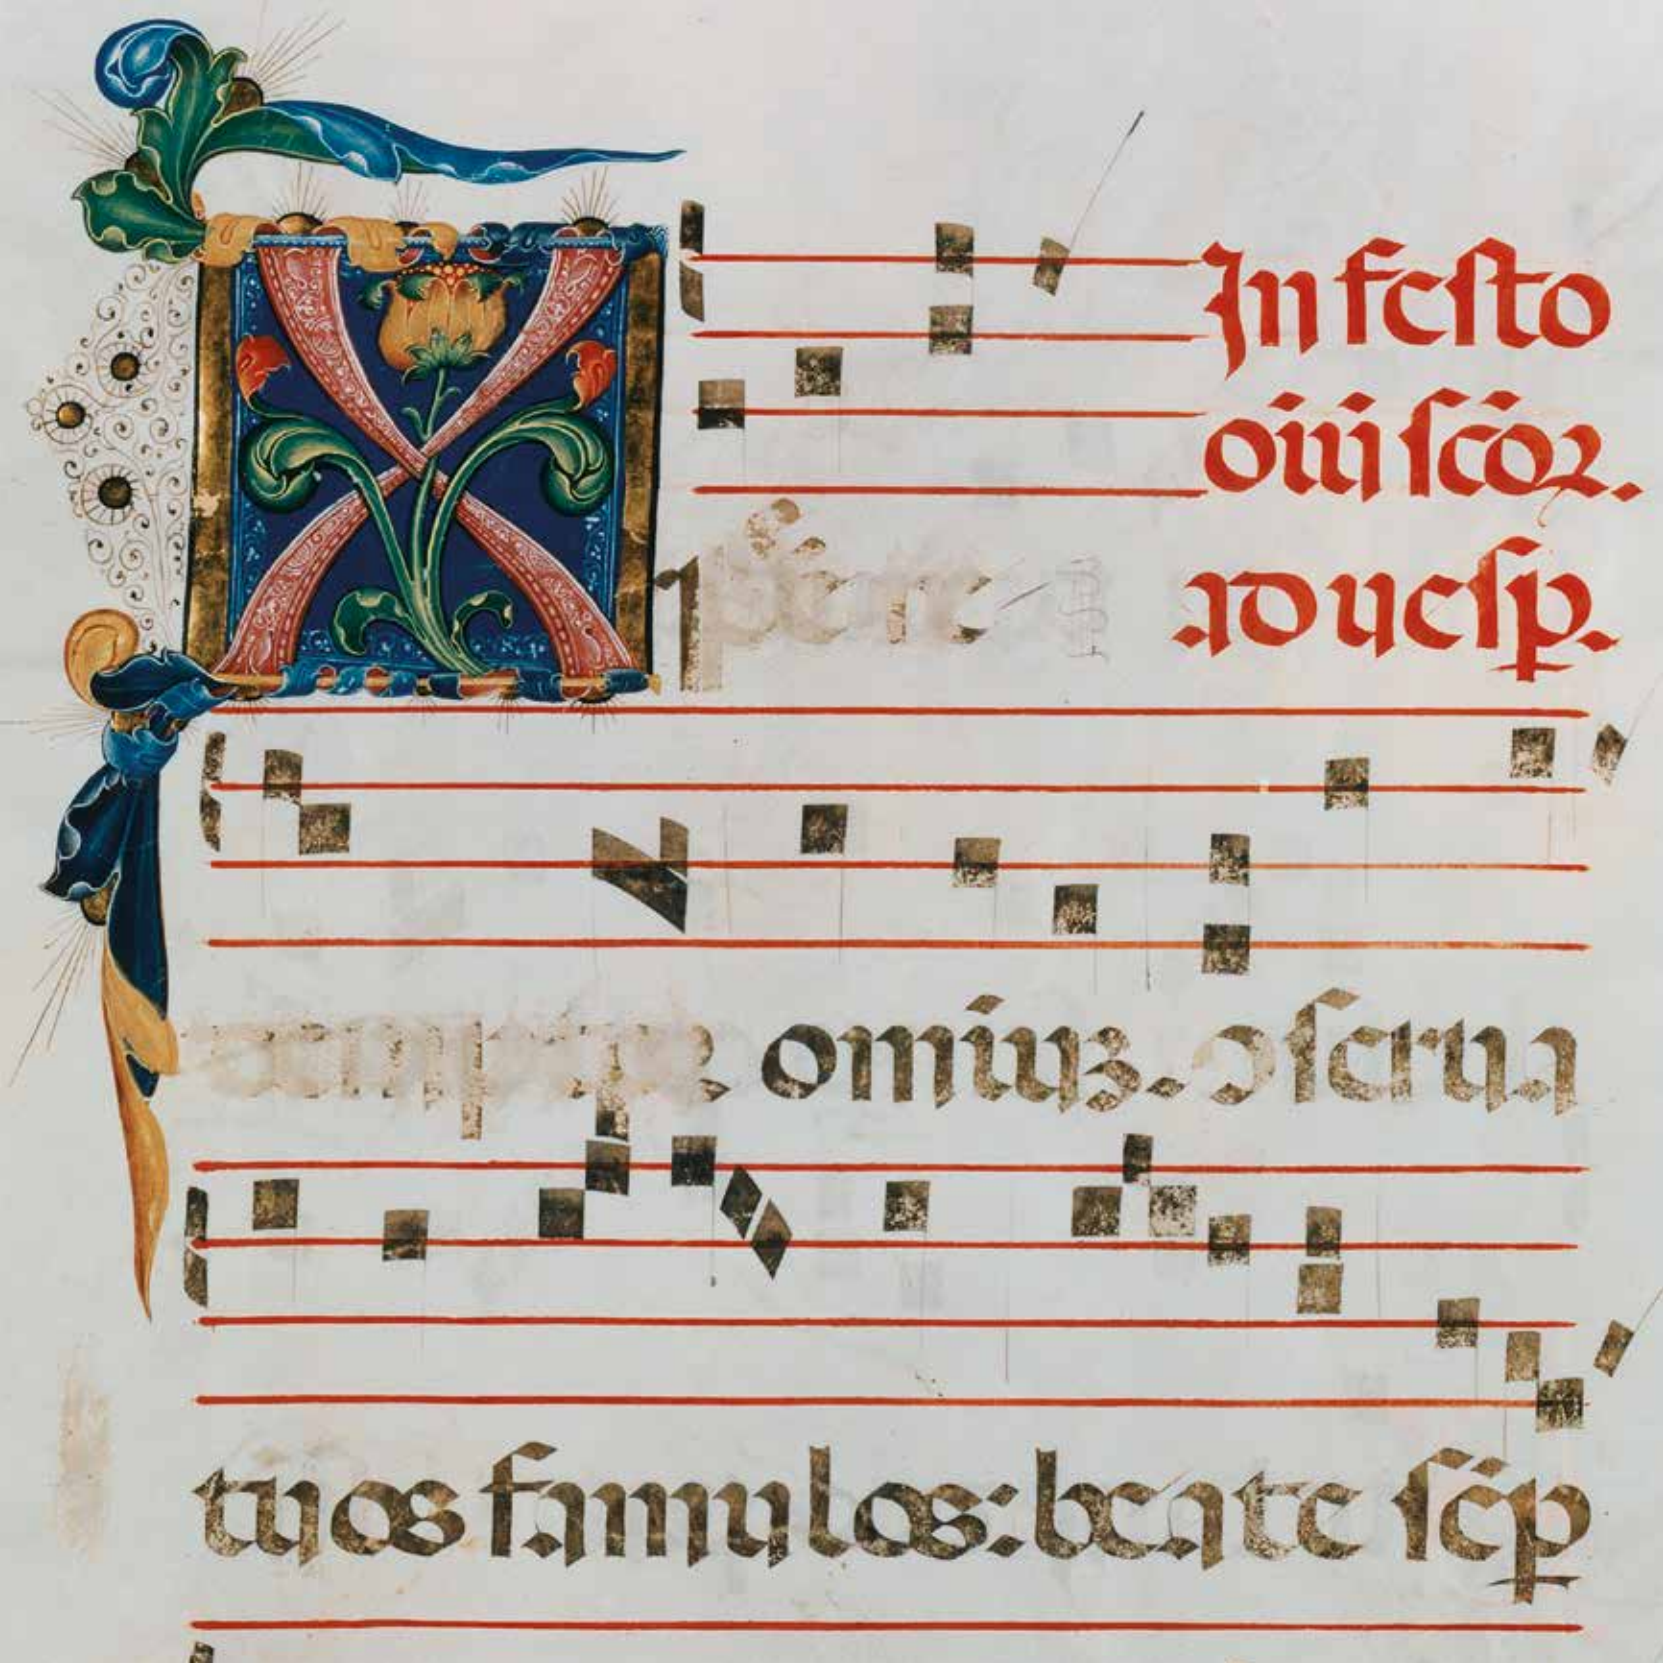 In festo
oīū scōꝝ.
ad uesp̱.
X
omīuꝫ. ꝯserua
tuos famulos: beate sēꝑ